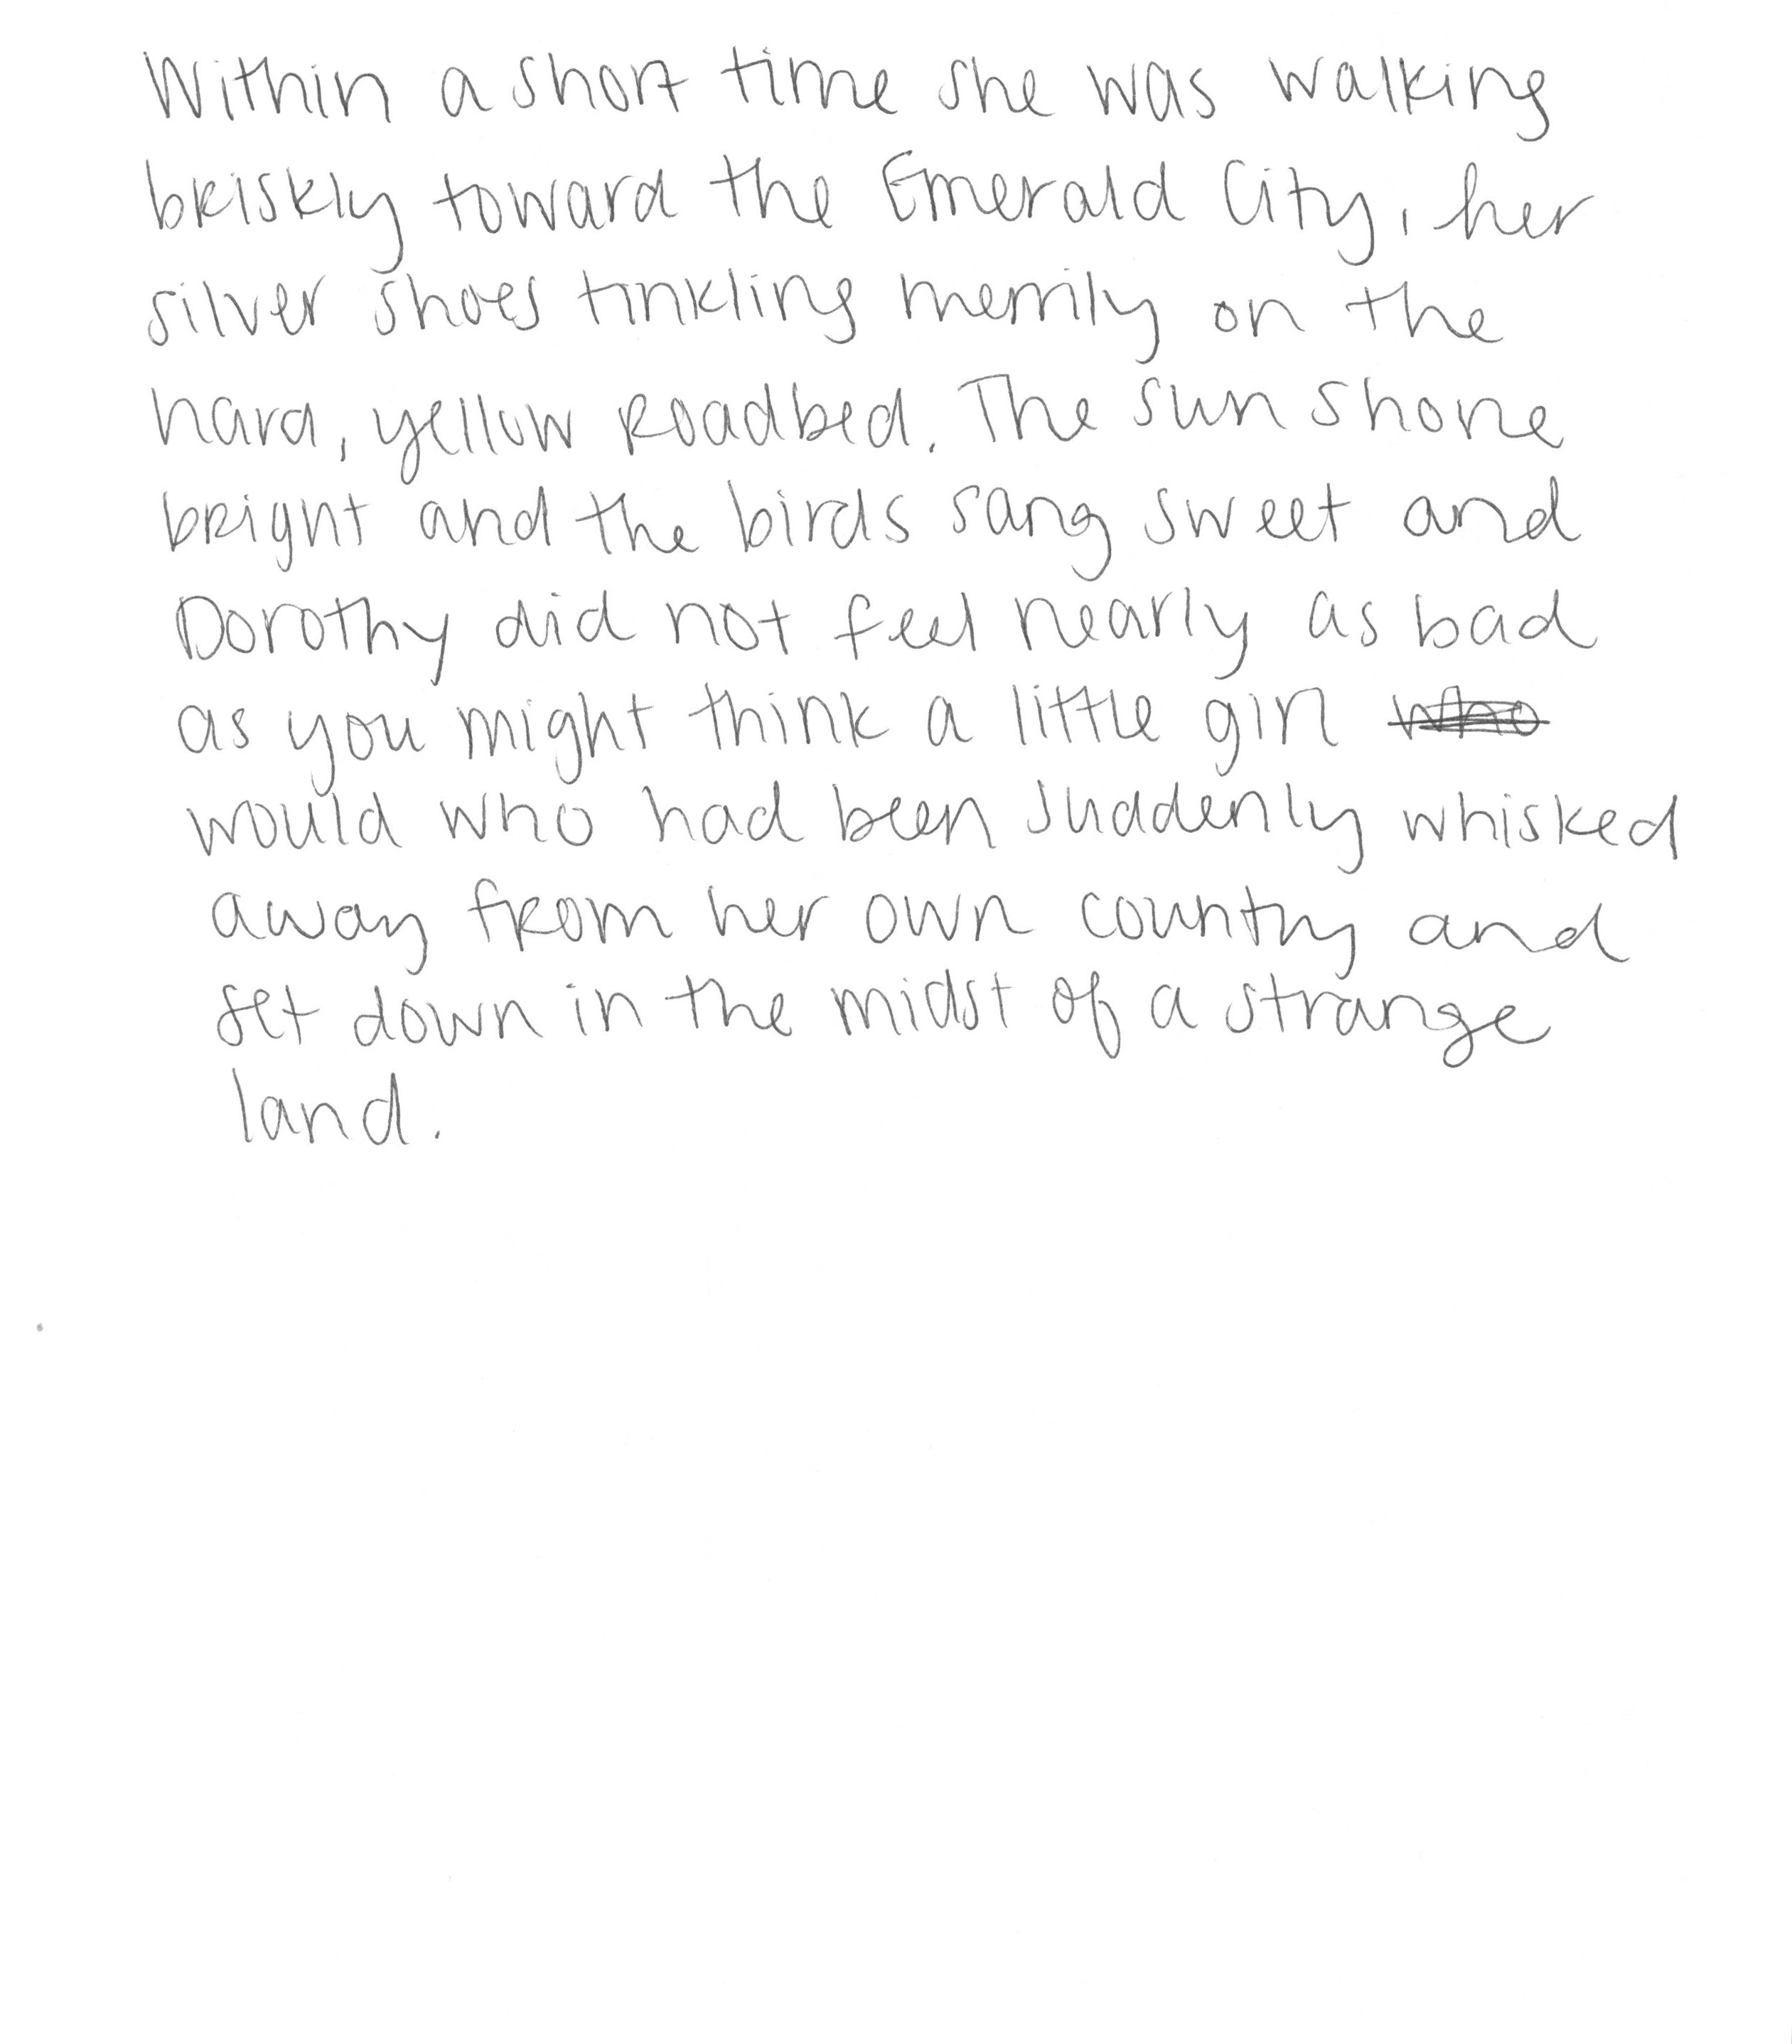 Within a short time she was walking
briskly toward the Emerald City, her
silver shoes tinkling merrily on the
hard, yellow roadbed. The sun shone
bright and the birds sang sweet and
Dorothy did not feel nearly as bad
as you might think a little girl who
would who had been suddenly whisked
away from her own country and
set down in the midst of a strange
land.